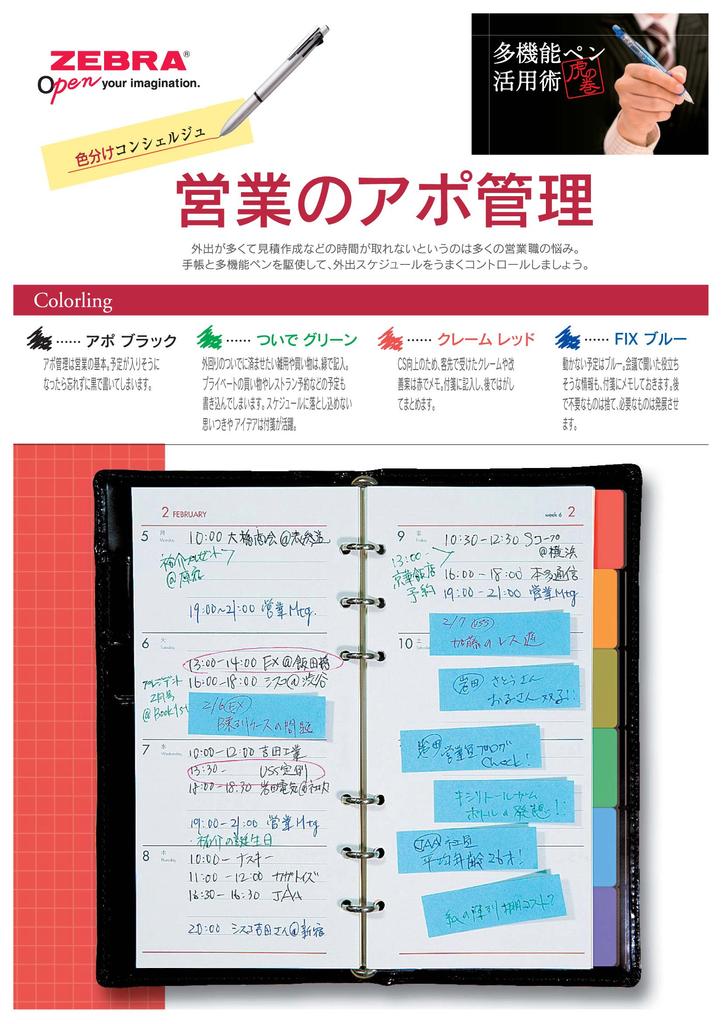 ZEBRA®
Open your imagination.
多機能ペン
活用術
虎の巻
色分けコンシェルジュ
営業のアポ管理
外出が多くて見積作成などの時間が取れないというのは多くの営業職の悩み。
手帳と多機能ペンを駆使して、外出スケジュールをうまくコントロールしましょう。
Colorling
……アポ ブラック
アポ管理は営業の基本。予定が入りそうに
なったら忘れずに黒で書いてしまいます。
……ついで グリーン
外回りのついでに済ませたい雑用や買い物は、緑で記入。
プライベートの買い物やレストラン予約などの予定も
書き込んでしまいます。スケジュールに落とし込めない
思いつきや アイデアは付箋が活躍。
……クレーム レッド
CS向上のため、客先で受けたクレームや改
善案は赤でメモ。付箋に記入し、後ではがし
てまとめます。
……FIX ブルー
動かない予定はブルー。会議で聞いた役立ち
そうな情報も、付箋にメモしておきます。後
で不要なものは捨て、必要なものは発展させ
ます。
2 FEBRUARY
5 月
Monday
10:00 大橋商会@表参道
祐介プレゼント
@原宿
19:00~21:00 営業Mtg.
6 火
Tuesday
13:00-14:00 EX@飯田橋
16:00-18:00 シスコ@渋谷
プレジデント
2月号
@Book1st
2/6 EX
陳列ケースの問題
7 水
Wednesday
10:00-12:00 吉田工業
13:30- USS定例
19:00-21:00 営業Mtg
・祐介の誕生日
8 木
10:00-ナスキー
11:00-12:00 カザトイズ
JAA
20:00 シスコ吉田さん@新宿
week 6 2
9 金
Friday
10:30-12:30 Sコープ
@横浜
13:00-
京華飯店
予約
16:00-18:00 本多通信
19:00-21:00 営業Mtg
10 土
2/7 USS
加藤のレス遅
岩田 さとうさん
おみさん双子!!
営業部ブログ
Check!
キシリトールガム
ボトルの発想!!
JAA 社員
平均年齢26才!